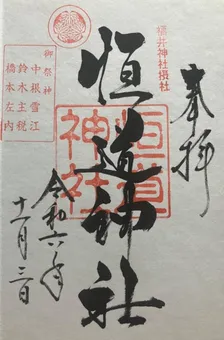 奉拝
福井神社摂社
恒道神社
恒道神社
御祭神
中根雪江
鈴木主税
橋本左内
令和六年
十一月三日